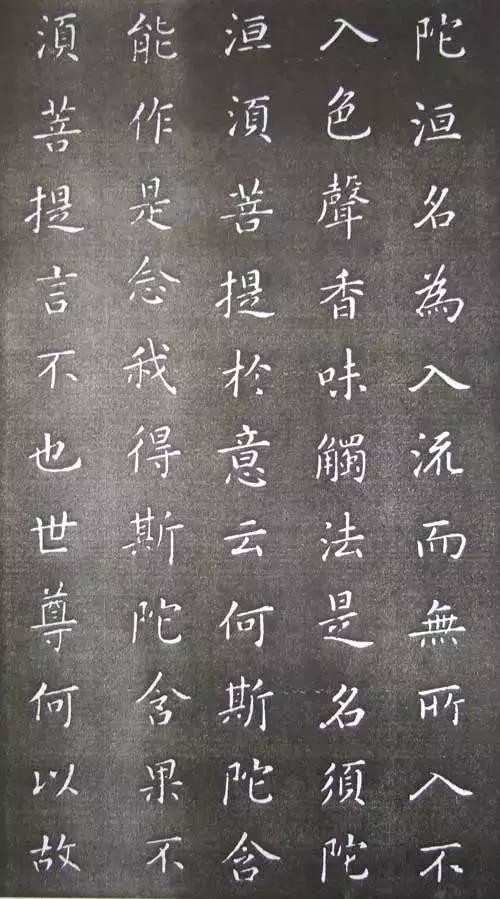 陀洹名為入流而無所入不
入色聲香味觸法是名須陀
洹須菩提於意云何斯陀含
能作是念我得斯陀含果不
須菩提言不也世尊何以故